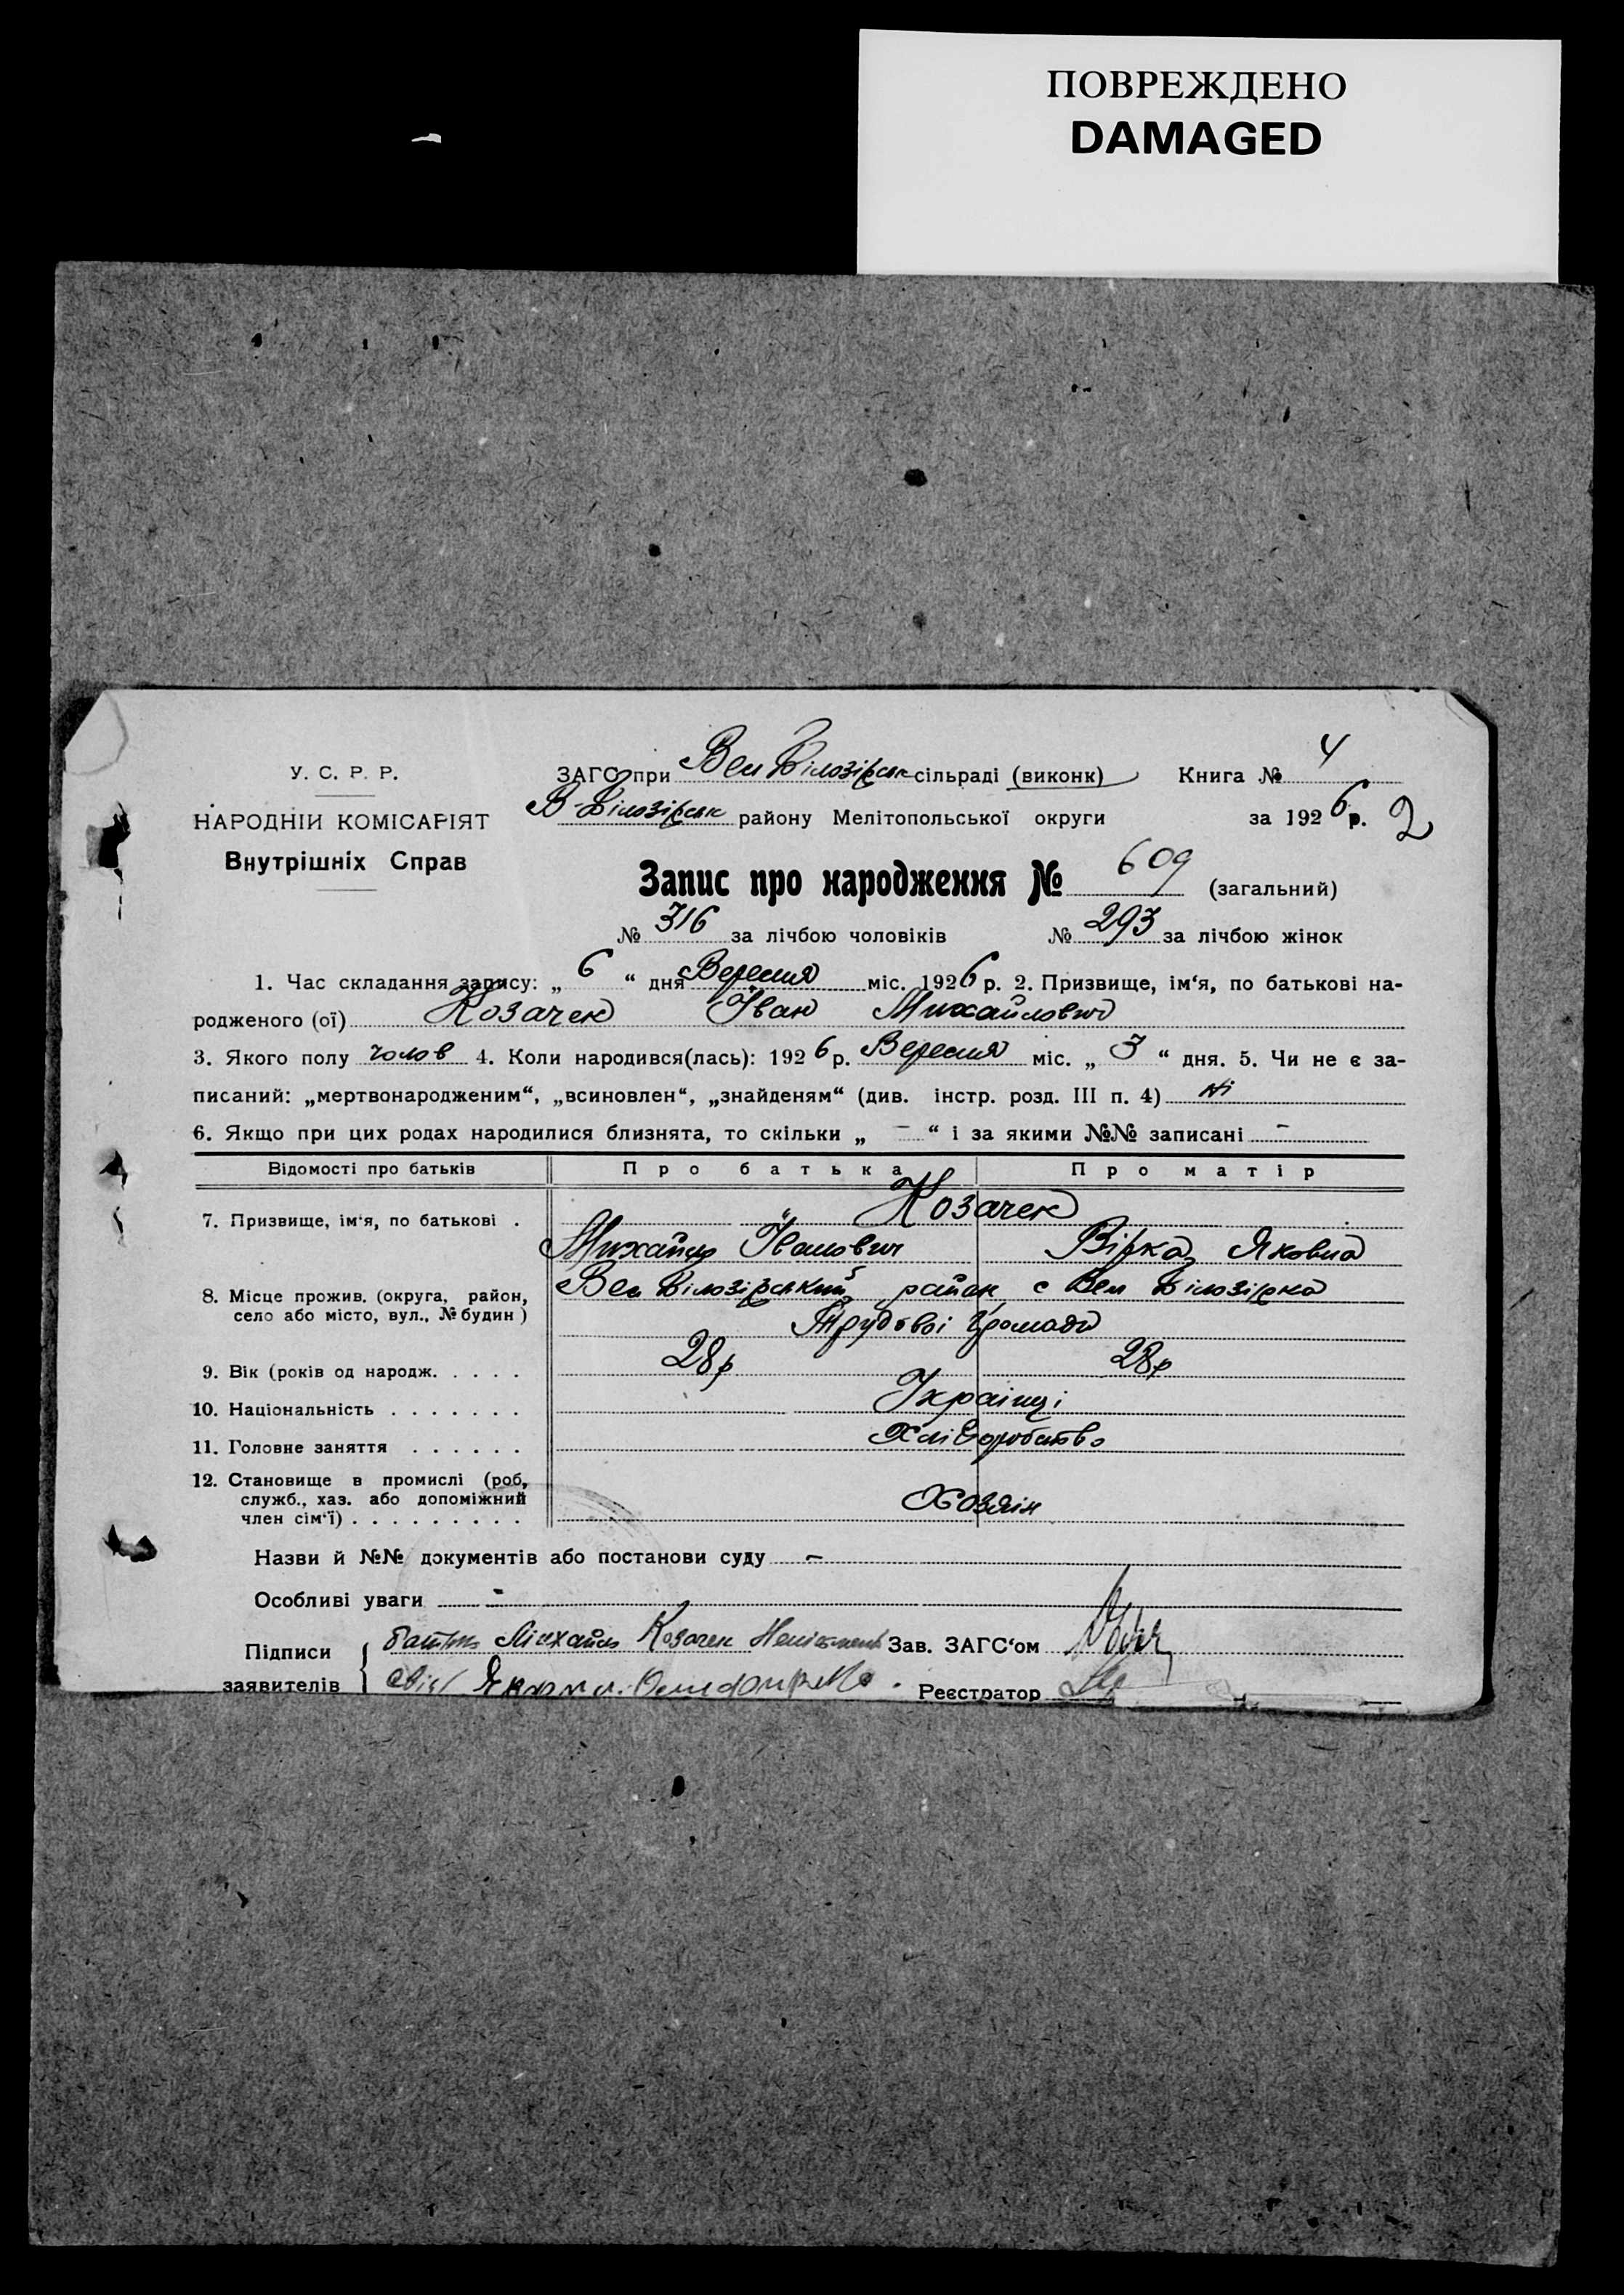 ПОВРЕЖДЕНО
DAMAGED
У. С. Р. Р.
НАРОДНІЙ КОМІСАРІЯТ
Внутрішніх Справ
ЗАГС при Вел Білозірськ сільраді (виконк) Книга № 4
В-Білозірськ району Мелітопольської округи за 1926 р. 2
Запис про народження № 609 (загальний)
№ 316 за лічбою чоловіків № 293 за лічбою жінок
1. Час складання запису: „ 6 “ дня Вересня міс. 1926 р. 2. Призвище, ім‘я, по батькові на-
родженого (ої) Козачек Іван Михайлович
3. Якого полу чолов 4. Коли народився(лась): 1926 р. Вересня міс. „ 3 “ дня. 5. Чи не є за-
писаний: „мертвонародженим“, „всиновлен“, „знайденям“ (див. інстр. розд. III п. 4) Ні
6. Якщо при цих родах народилися близнята, то скільки „ – “ і за якими №№ записані –
Відомості про батьків Про батька Про матір
7. Призвище, ім‘я, по батькові . Козачек
Михайло Іванович Вірка Яковна
8. Місце прожив. (округа, район, село або місто, вул., № будин) Вел Білозірський район с Вел Білозірка
Трудової Громади
9. Вік (років од народж. . . . . 28 р 28 р
10. Національність . . . . . . . Українці
11. Головне заняття . . . . . . Хліборобство
12. Становище в промислі (роб, служб., хаз. або допоміжний член сім‘ї) . . . . . . . . . Хозяін
Назви й №№ документів або постанови суду –
Особливі уваги -
Підписи заявителів { Батько Михайло Козачек Зав. ЗАГС‘ом
Реєстратор